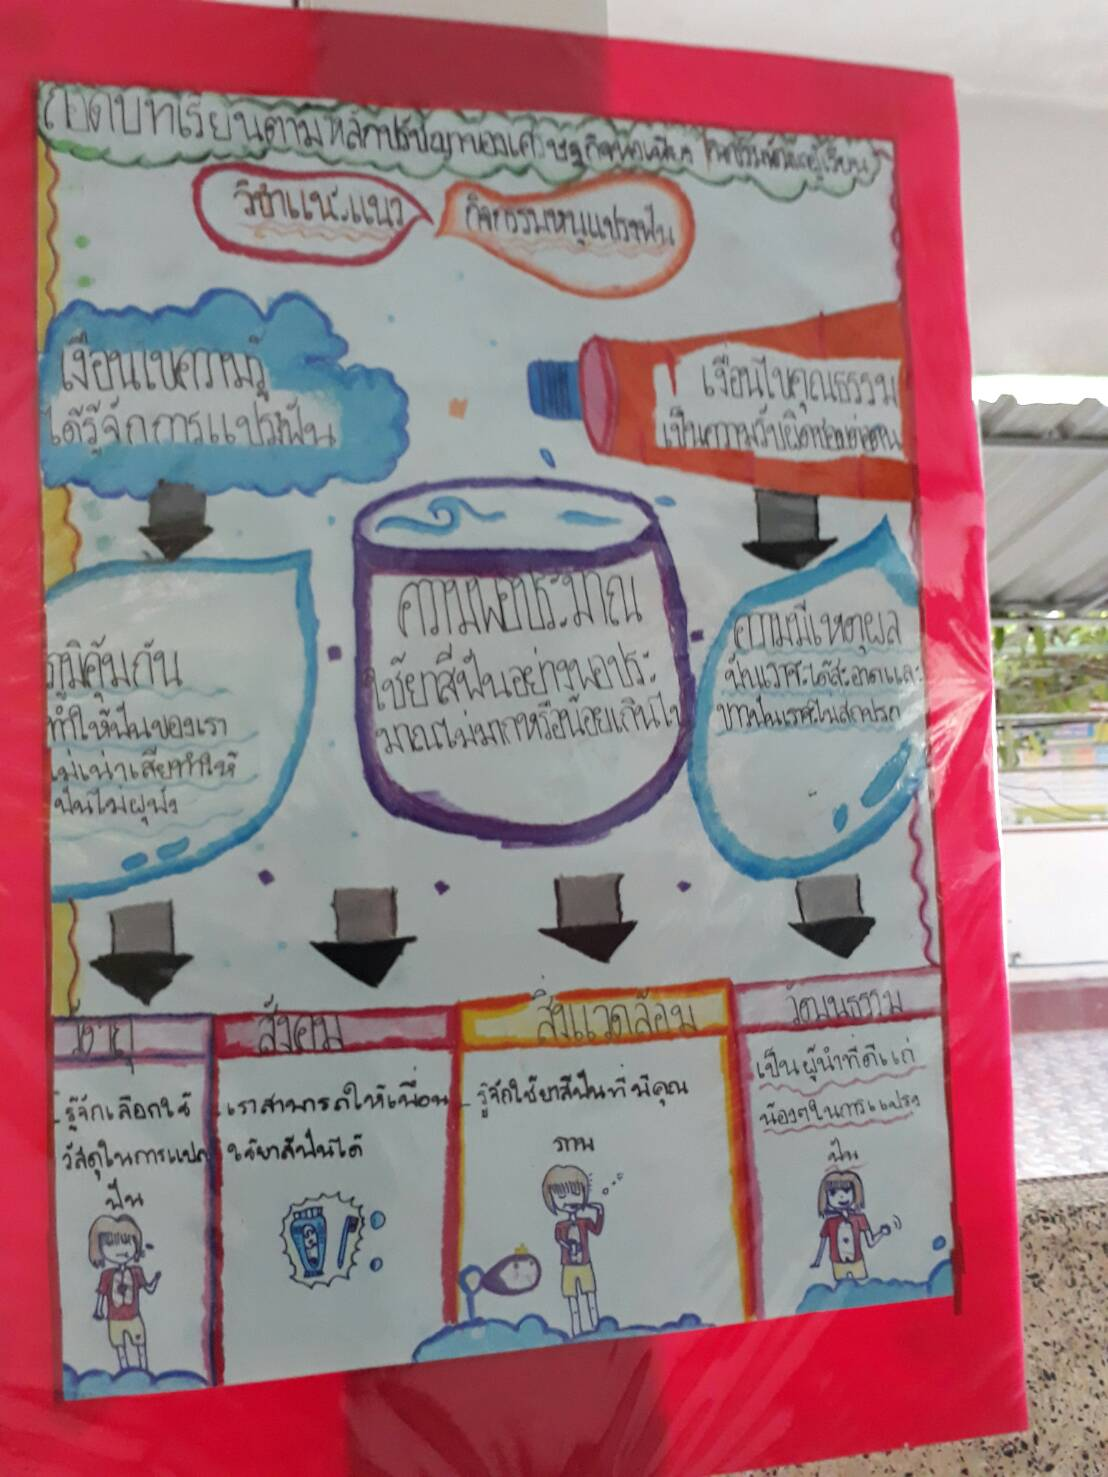 ถอดบทเรียนตามหลักปรัชญาของเศรษฐกิจพอเพียง
วิชาแนะแนว
กิจกรรมหนูแปรงฟัน
เงื่อนไขความรู้
ได้รู้จักการแปรงฟัน
เงื่อนไขคุณธรรม
เป็นความรับผิดชอบต่อตน
ภูมิคุ้มกัน
ทำให้ฟันของเรา
ไม่เน่าเสียทำให้
ฟันไม่ผุพัง
ความพอประมาณ
ใช้ยาสีฟันอย่างพอประ
มาณไม่มากหรือน้อยเกินไป
ความมีเหตุผล
ฟันเราจะได้สะอาดและ
วัตถุ
รู้จักเลือกใช้
วัสดุในการแปรง
ฟัน
สังคม
เราสามารถให้เพื่อน
ใช้ยาสีฟันได้
สิ่งแวดล้อม
รู้จักใช้ยาสีฟันที่มีคุณ
ภาพ
วัฒนธรรม
เป็นผู้นำที่ดีแก่
น้องๆในการแปรง
ฟัน